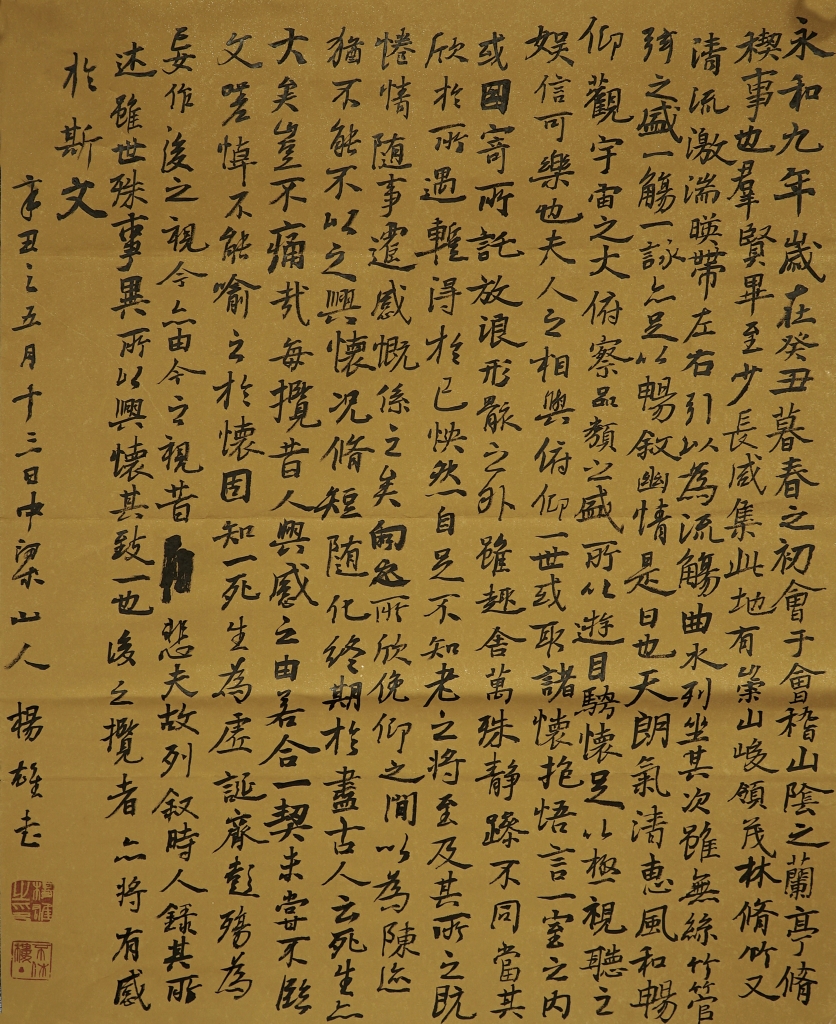 永和九年歲在癸丑暮春之初會于會稽山陰之蘭亭脩
禊事也羣賢畢至少長咸集此地有崇山峻領茂林脩竹又
清流激湍暎帶左右引以為流觴曲水列坐其次雖無絲竹管
弦之盛一觴一詠亦足以暢敘幽情是日也天朗氣清惠風和暢
仰觀宇宙之大俯察品類之盛所以遊目騁懷足以極視聽之
娛信可樂也夫人之相與俯仰一世或取諸懷抱悟言一室之內
或因寄所託放浪形骸之外雖趣舍萬殊静躁不同當其
欣於所遇暫得於己怏然自足不知老之將至及其所之既
惓情随事遷感慨係之矣向之所欣俛仰之間以為陳迹
猶不能不以之興懷況脩短随化終期於盡古人云死生亦
大矣豈不痛哉每攬昔人興感之由若合一契未嘗不臨
文嗟悼不能喻之於懷固知一死生為虛誕齊彭殤為
妄作後之視今亦由今之視昔悲夫故列叙時人録其所
述雖世殊事異所以興懷其致一也後之攬者亦將有感
於斯文
辛丑之五月十三日中梁山人楊雄
楊雄之印